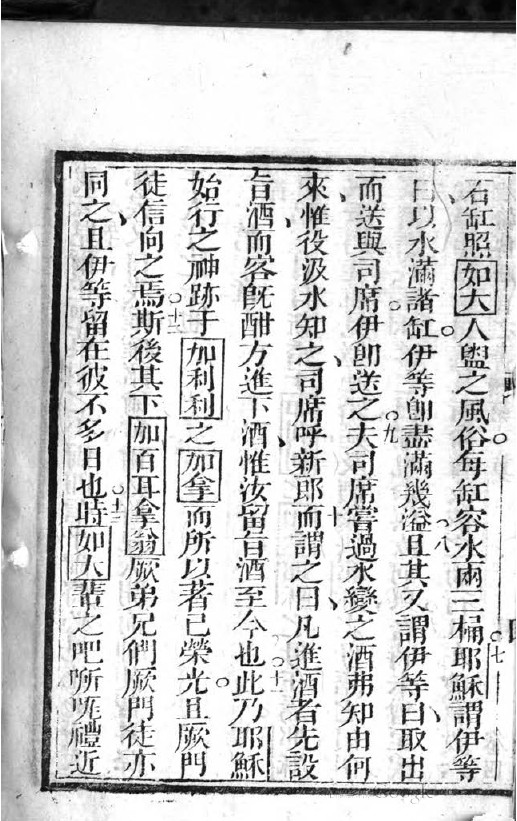 石缸照如大人盥之風俗每缸容水兩三桶耶穌謂伊等七
曰以水滿諸缸伊等卽盡滿幾溢且其又謂伊等曰取出八
而送與司席伊卽送之夫司席嘗過水變之酒弗知由何九
來惟役汲水知之司席呼新郎而謂之曰凡進酒者先設十
旨酒而客旣酣方進下酒惟汝留旨酒至今也此乃耶穌十一
始行之神跡于加利利之加拿而所以著已榮光且厥門
徒信向之焉斯後其下加百耳拿翁厥弟兄們厥門徒亦十二
同之且伊等留在彼不多日也時如大輩之吧𠹌咓禮近十三